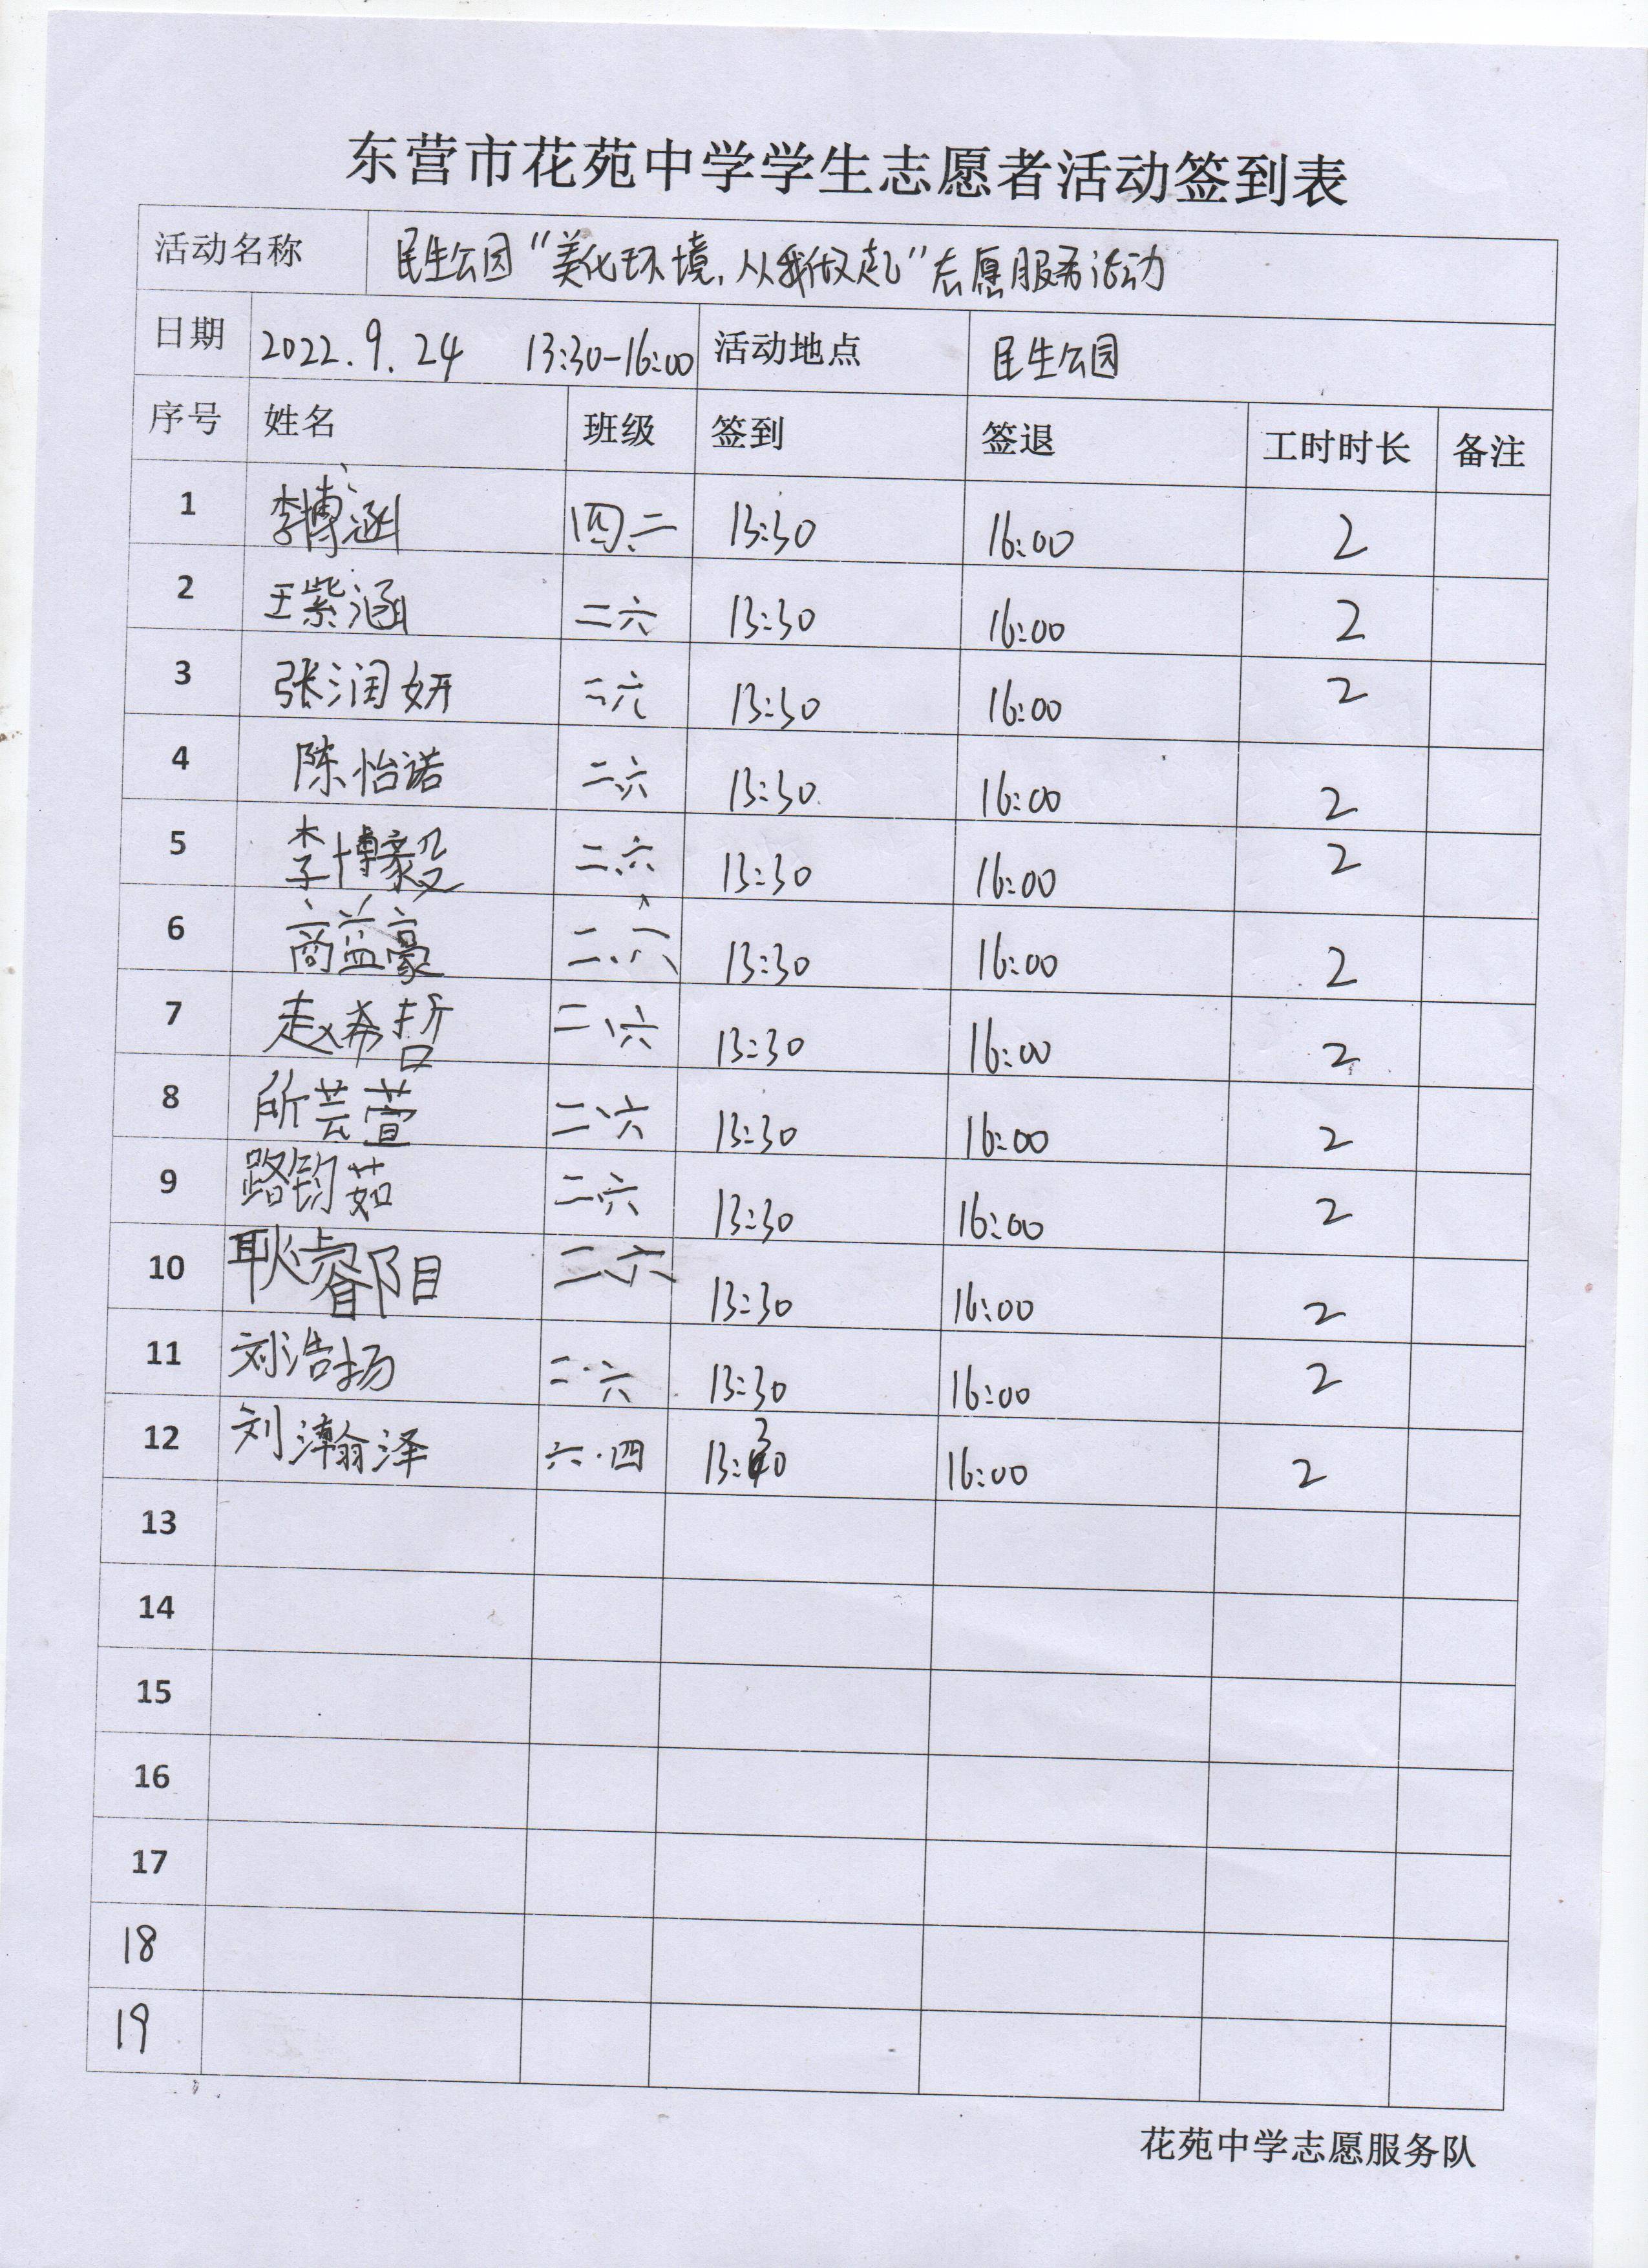 东营市花苑中学学生志愿者活动签到表
活动名称 民生公园“美化环境,从我做起”志愿服务活动
日期 2022.9.24 13:30-16:00 活动地点 民生公园
序号 姓名 班级 签到 签退 工时时长 备注
1 李博涵 四.二 13:30 16:00 2
2 王紫涵 二六 13:30 16:00 2
3 张润妍 二.六 13:30 16:00 2
4 陈怡诺 二.六 13:30 16:00 2
5 李博毅 二.六 13:30 16:00 2
6 商益豪 二.六 13:30 16:00 2
7 赵希哲 二.六 13:30 16:00 2
8 所芸萱 二.六 13:30 16:00 2
9 路钧茹 二.六 13:30 16:00 2
10 耿睿阳 二.六 13:30 16:00 2
11 刘浩扬 二.六 13:30 16:00 2
12 刘瀚泽 六.四 13:30 16:00 2
13
14
15
16
17
18
19
花苑中学志愿服务队